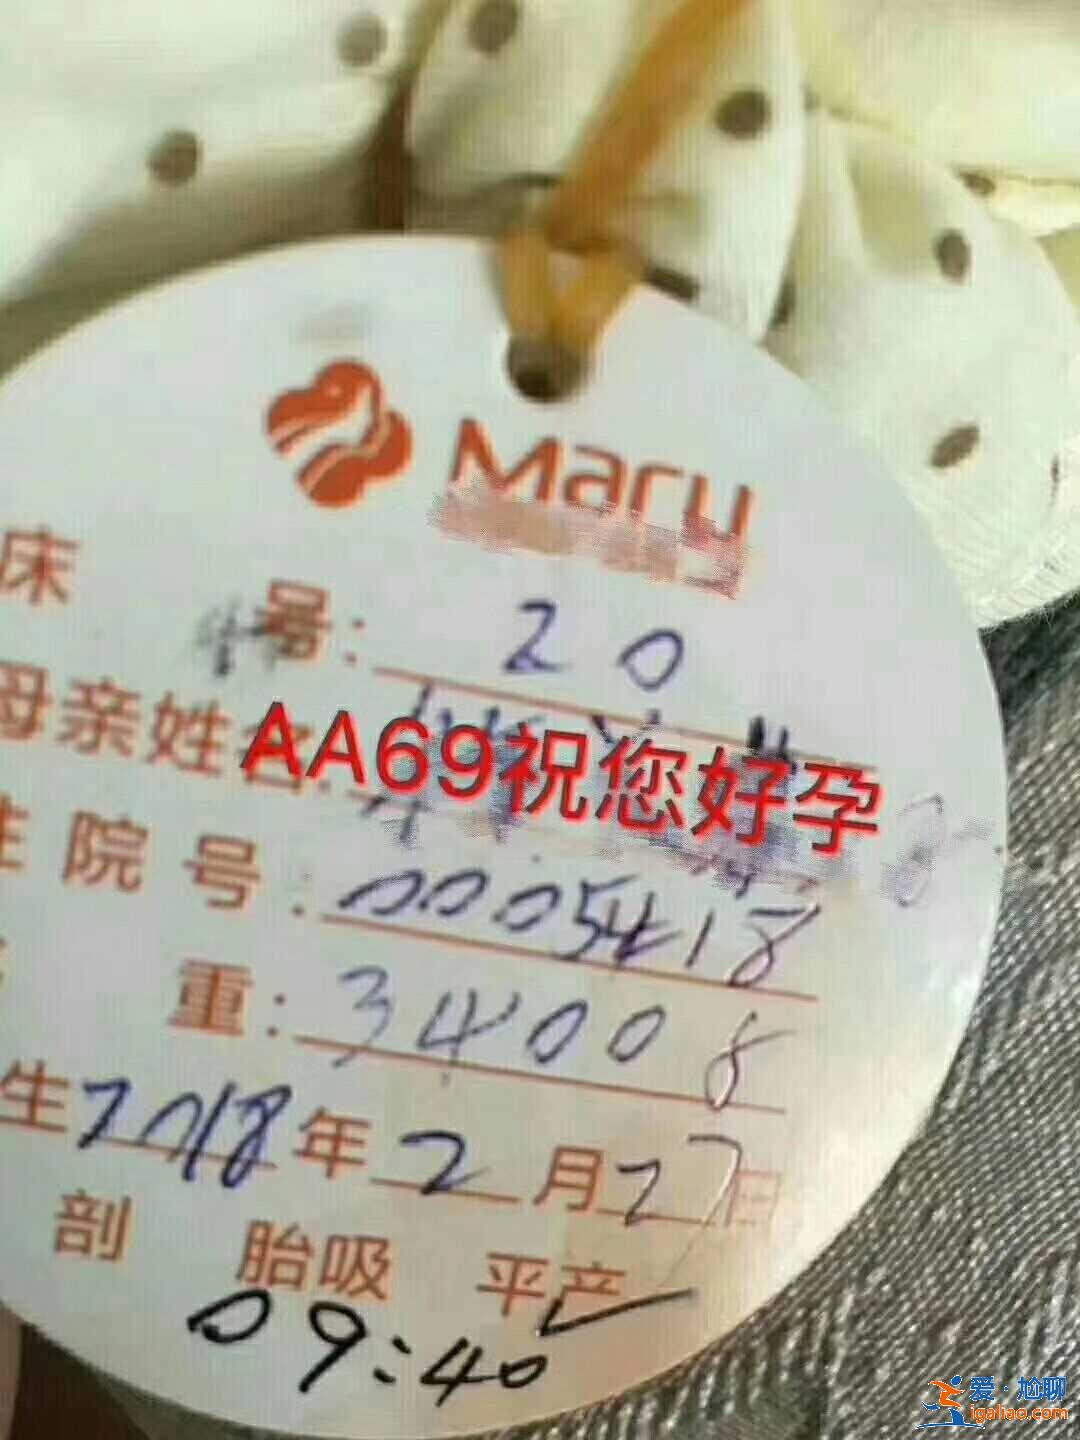 Mary
床 号: 20
母亲姓名:
AA69祝您好孕
住院号: 0005418
重: 3400g
生2018年2月27日
剖 胎吸 平产✓
09:40
爱·尴聊
igaliao.com